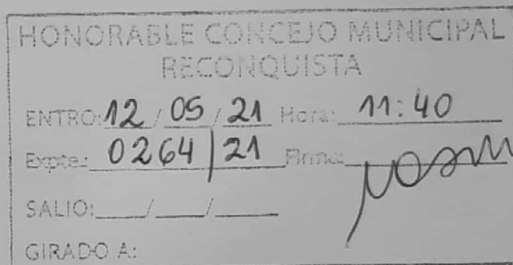 HONORABLE CONCEJO MUNICIPAL
RECONQUISTA
ENTRO: 12 / 05 / 21 Hora: 11:40
Expte.: 0264/21 Firma:
SALIO: ___/___/___
GIRADO A: